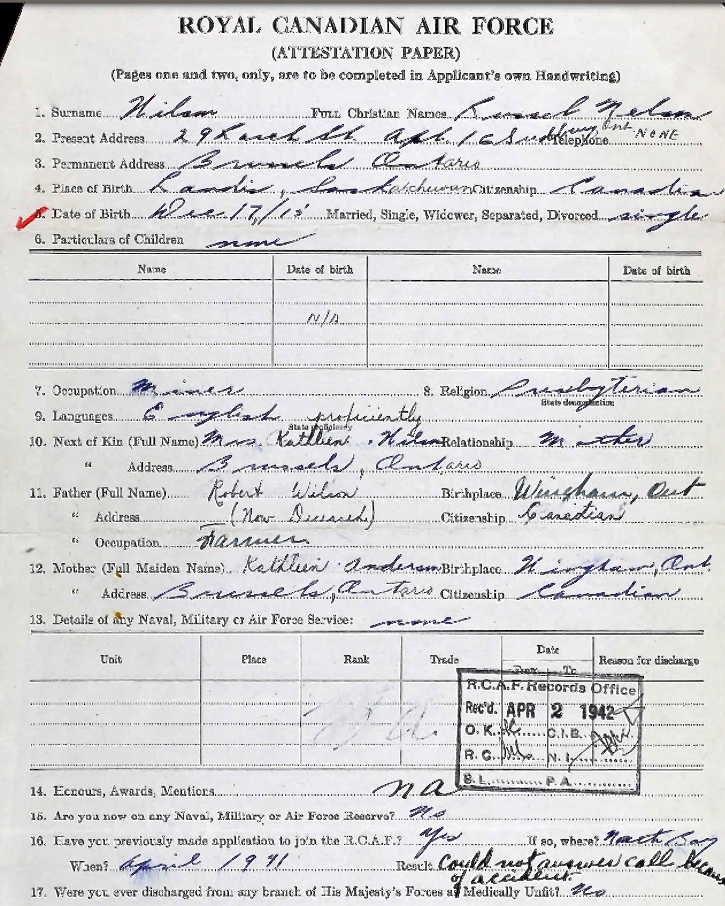 ROYAL CANADIAN AIR FORCE
(ATTESTATION PAPER)
(Pages one and two, only, are to be completed in Applicant's own Handwriting)
1. Surname Wilson Full Christian Names Russel Nelson
2. Present Address 29 St. Apt. 1 Sudbury Ont Telephone NONE
3. Permanent Address Brussels Ontario
4. Place of Birth Landis, Saskatchewan Citizenship Canadian
5. Date of Birth Dec 17/15 Married, Single, Widower, Separated, Divorced single
6. Particulars of Children none
Name Date of birth Name Date of birth
N/A
7. Occupation Miner 8. Religion Presbyterian
State denomination
9. Languages English proficiently
State proficiency
10. Next of Kin (Full Name) Mrs. Kathleen Wilson Relationship Mother
" Address Brussels, Ontario
11. Father (Full Name) Robert Wilson Birthplace Wingham, Ont
" Address (Now Deceased) Citizenship Canadian
" Occupation Farmer
12. Mother (Full Maiden Name) Kathleen Anderson Birthplace Wingham, Ont.
" Address Brussels, Ontario Citizenship Canadian
13. Details of any Naval, Military or Air Force Service: none
Unit Place Rank Trade Date From To Reason for discharge
R.C.A.F. Records Office
Rec'd. APR 2 1942
O.K. C.I.B.
R.C. N.I.
S.L. P.A.
14. Honours, Awards, Mentions na
15. Are you now on any Naval, Military or Air Force Reserve? No
16. Have you previously made application to join the R.C.A.F.? Yes If so, where? North Bay
When? April 1941 Result Could not answer call because
of accident
17. Were you ever discharged from any branch of His Majesty's Forces as Medically Unfit? No